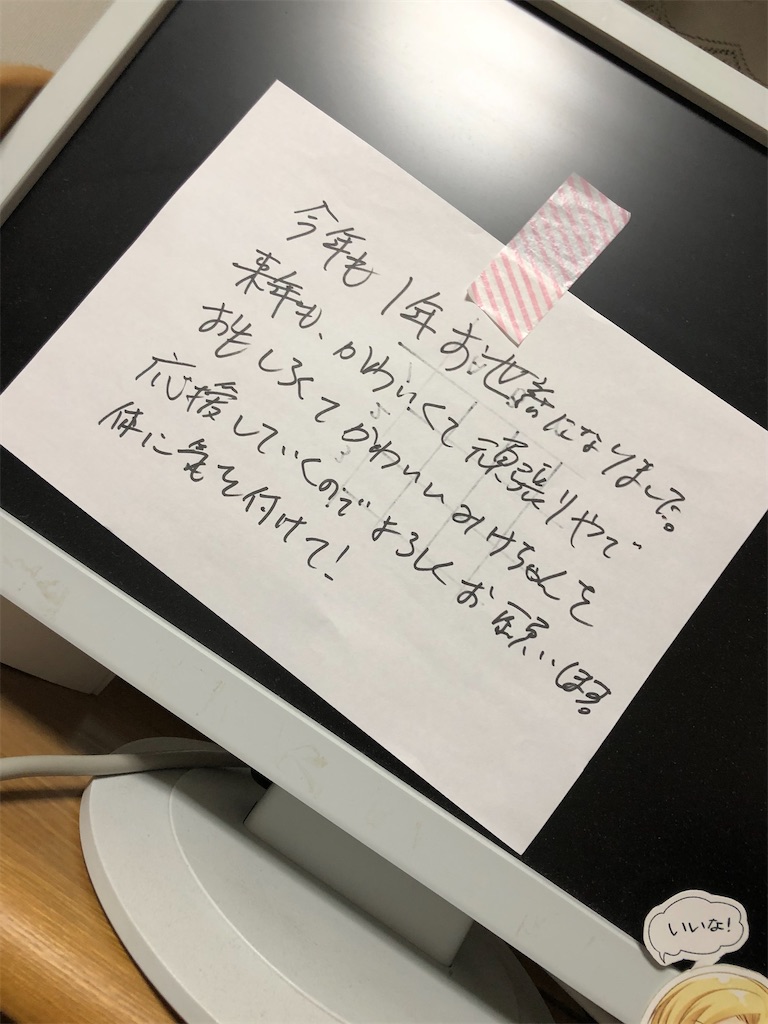 今年も1年お世話になりました。
来年も、かわいくて頑張りやで
おもしろくてかわいいみけちゃんを
応援していくのでよろしくお願いします。
体に気を付けて!
いいな!